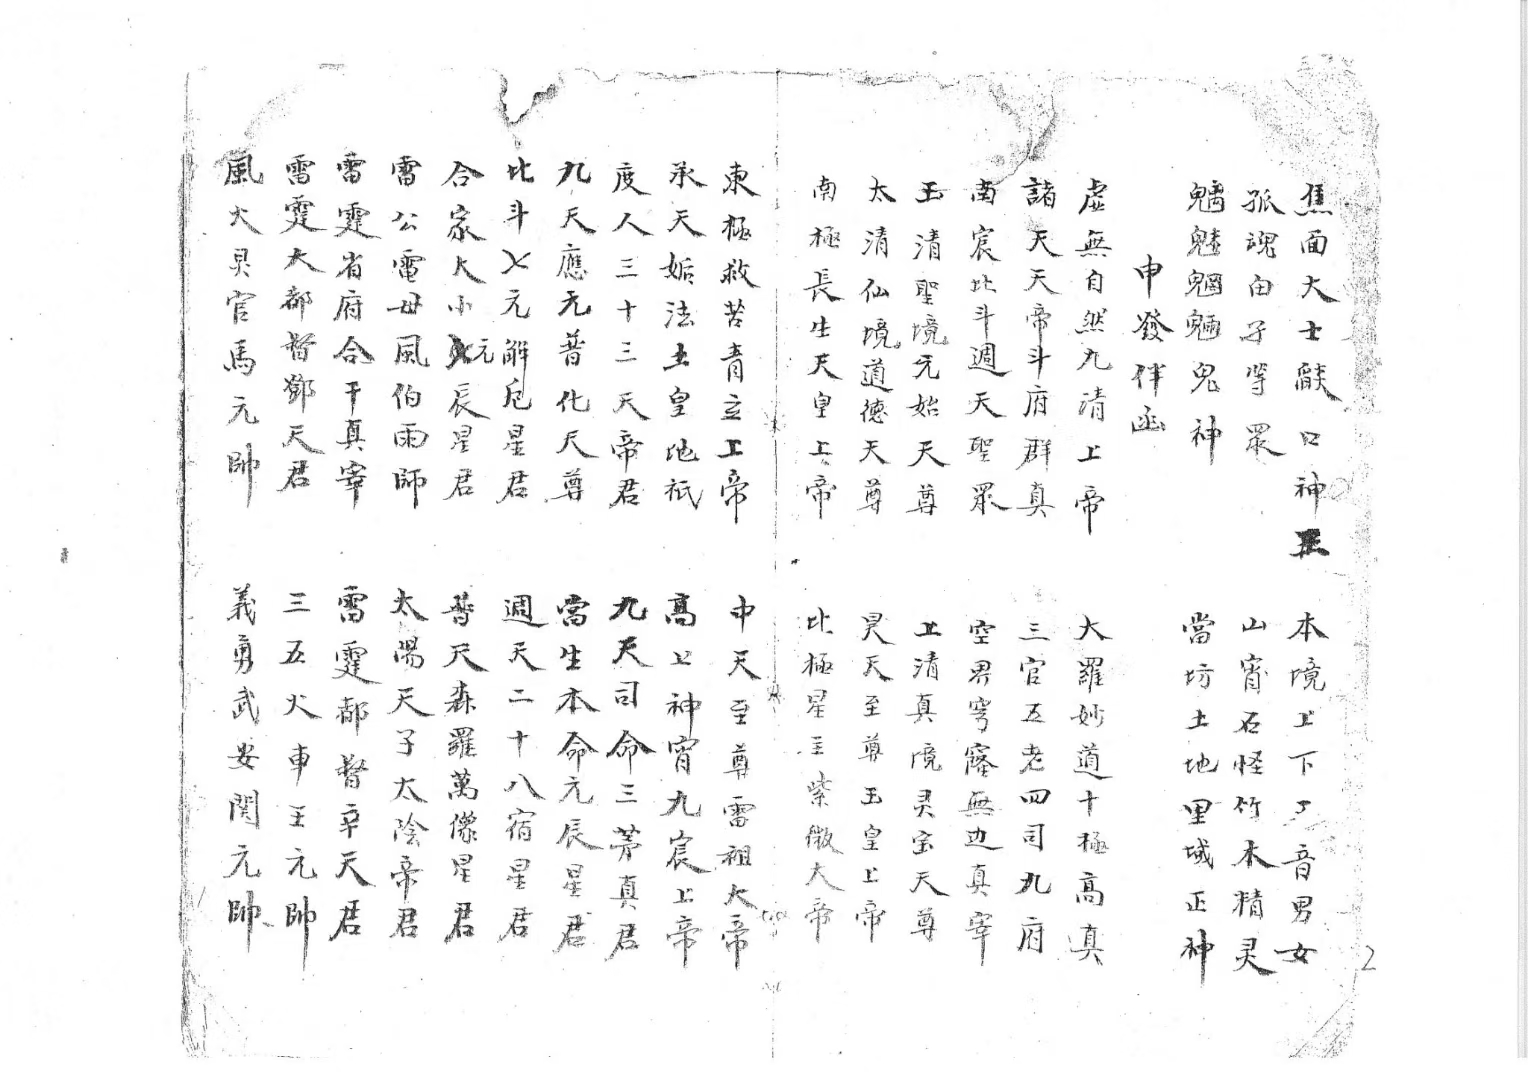 焦面大士燄口神王
本境上下了音男女
孤魂由子等眾
山宵石怪竹木精灵
魑魅魍魎鬼神
當坊土地里域正神
申發伴函
虛無自然九清上帝
大羅妙道十極高真
諸天天帝斗府群真
三官五老四司九府
南宸北斗週天聖眾
空界穹窿無边真宰
玉清聖境元始天尊
上清真境灵宝天尊
太清仙境道德天尊
昊天至尊玉皇上帝
南極長生天皇上帝
北極星主紫微大帝
東極救苦青玄上帝
中天至尊雷祖大帝
承天姤法土皇地祇
高上神宵九宸上帝
度人三十三天帝君
九天司命三茅真君
九天應元普化天尊
當生本命元辰星君
北斗七元解厄星君
週天二十八宿星君
合家大小元辰星君
普天森羅萬像星君
雷公電母風伯雨師
太陽天子太陰帝君
雷霆省府合干真宰
雷霆都督辛天君
雷霆大都督鄧天君
三五火車王元帥
風火灵官馬元帥
義勇武安関元帥
2